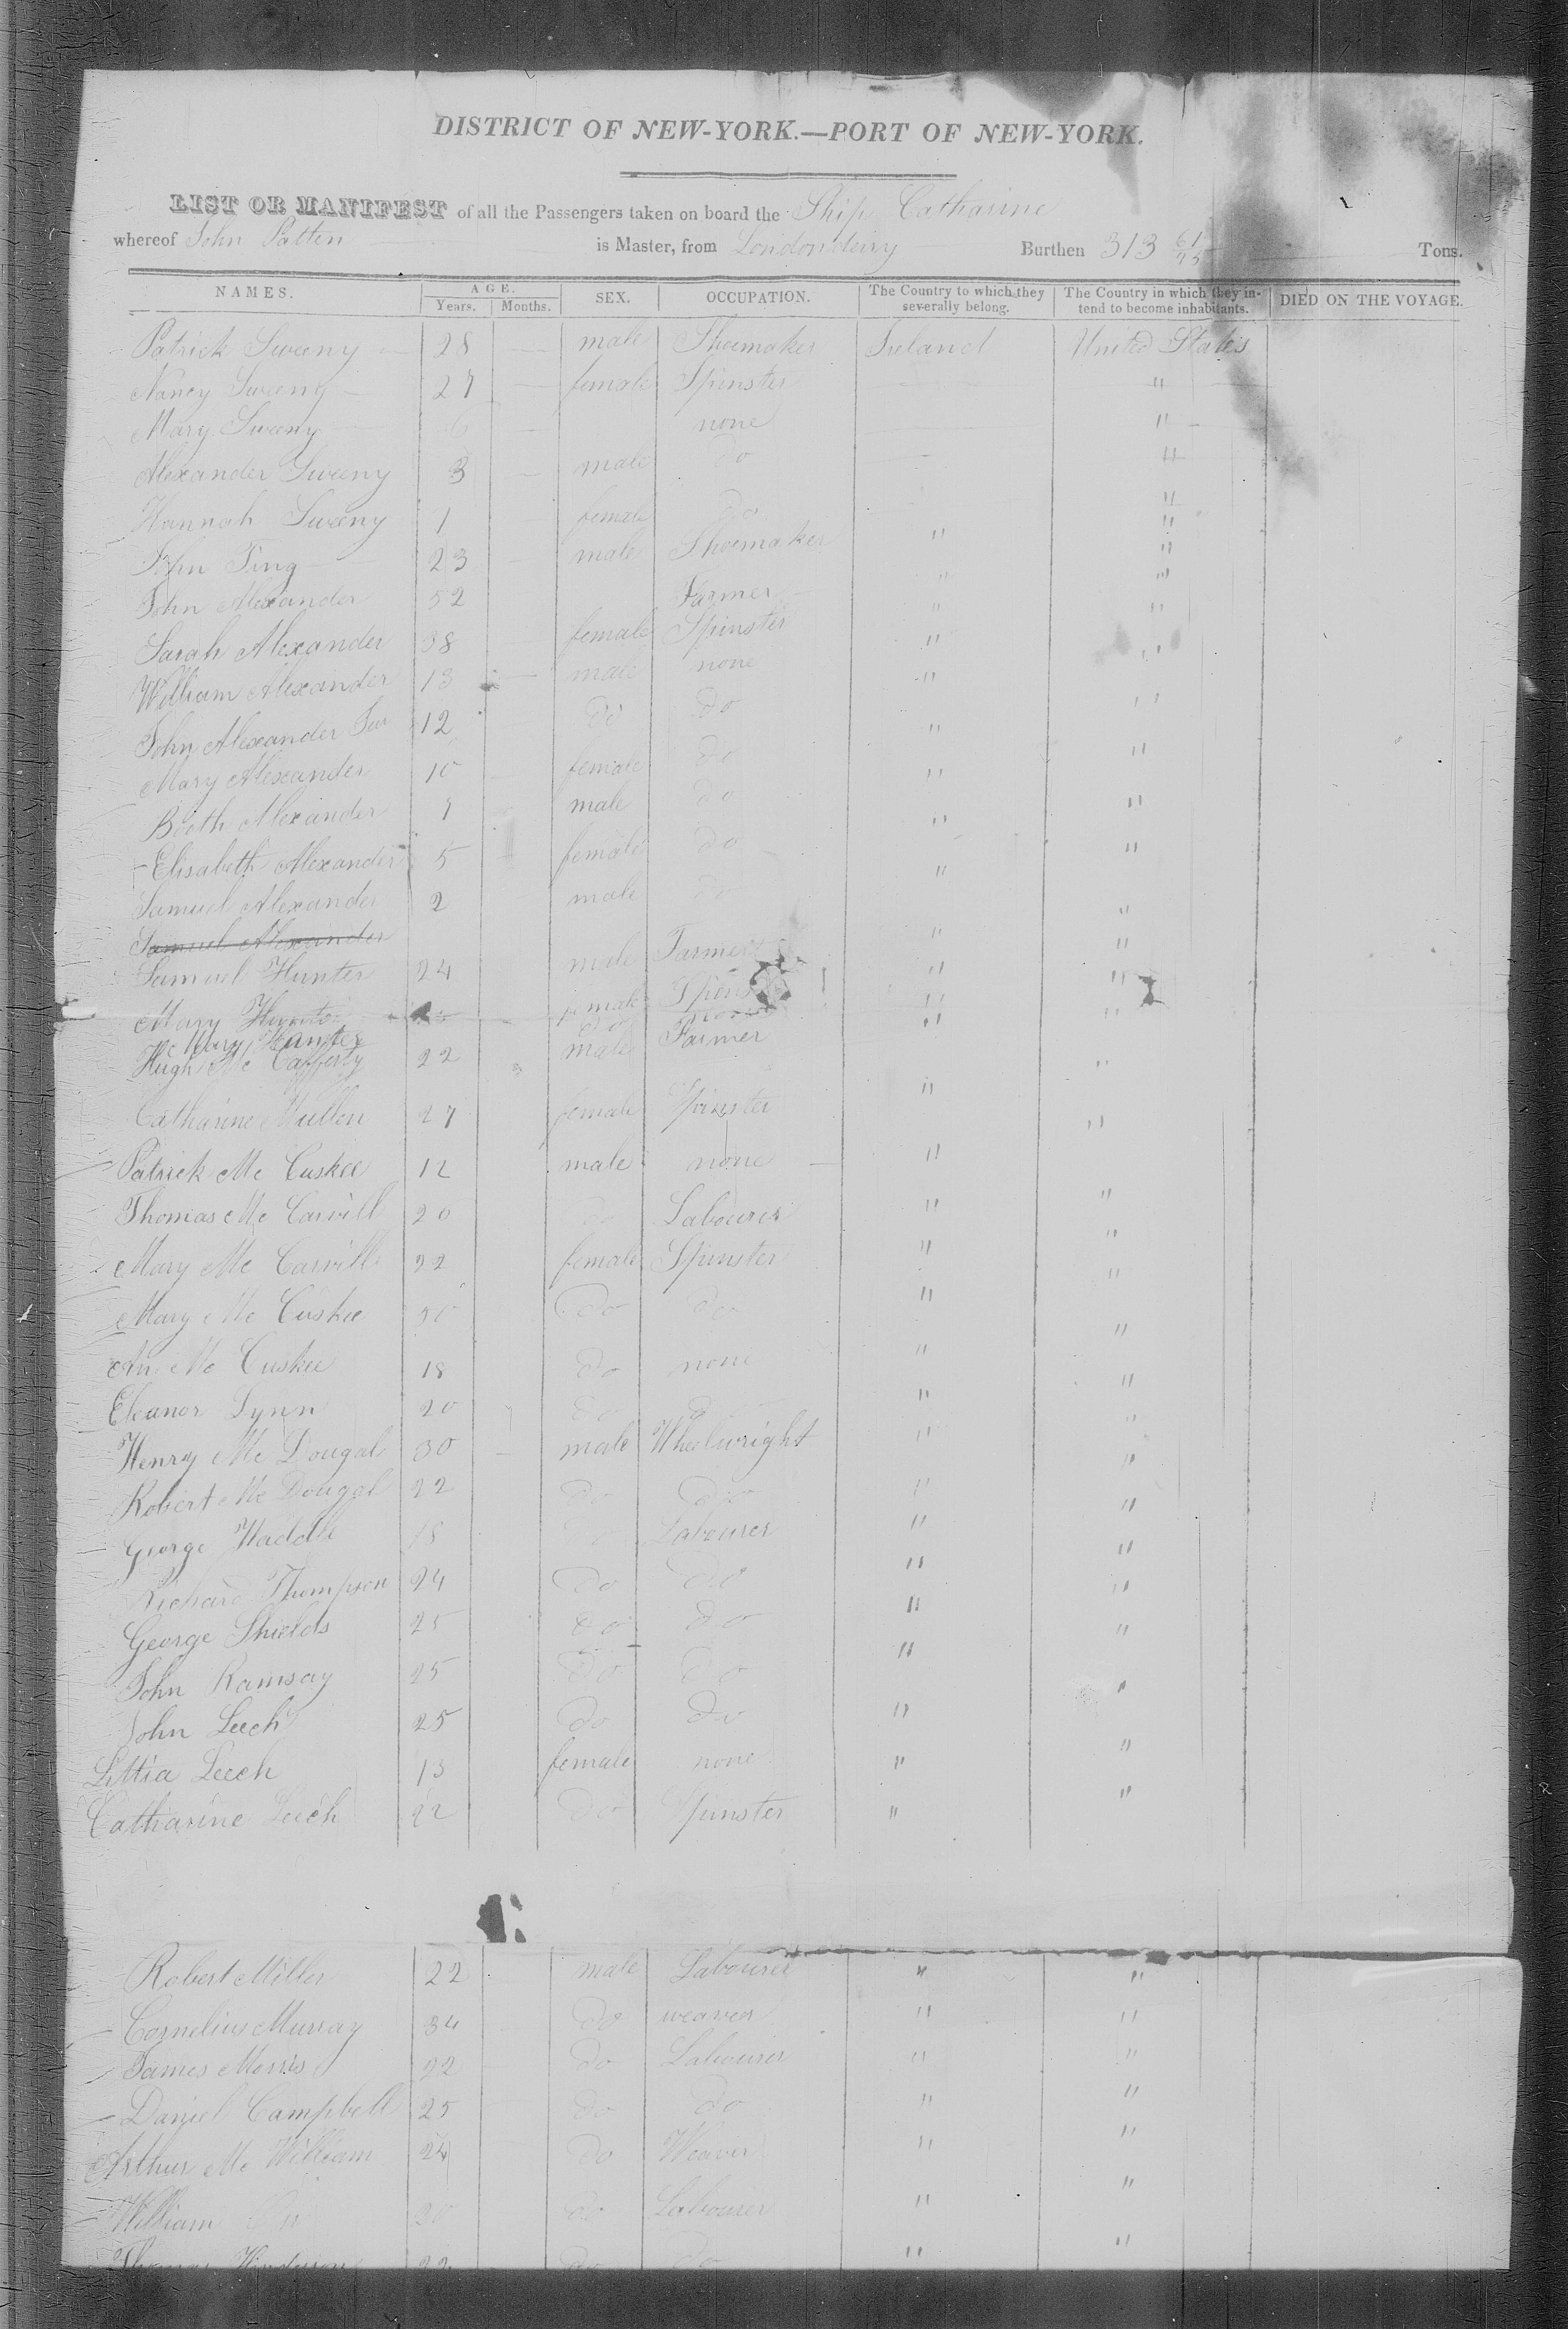 DISTRICT OF NEW-YORK.—PORT OF NEW-YORK.
LIST OR MANIFEST of all the Passengers taken on board the Ship Catharine
whereof John Patten is Master, from Londonderry Burthen 313 61/95 Tons.
NAMES. AGE. Years. Months. SEX. OCCUPATION. The Country to which they severally belong. The Country in which they intend to become inhabitants. DIED ON THE VOYAGE.
Patrick Sweeny 28 male Shoemaker Ireland United States
Nancy Sweeny 27 female Spinster "
Mary Sweeny 6 none "
Alexander Sweeny 3 male do "
Hannah Sweeny 1 female do "
John Ting 23 male Shoemaker " "
John Alexander 52 Farmer " "
Sarah Alexander 38 female Spinster " "
William Alexander 13 male none " "
John Alexander Jur 12 do do " "
Mary Alexander 10 female do " "
Booth Alexander 7 male do " "
Elisabeth Alexander 5 female do " "
Samuel Alexander 2 male do " "
Samuel Alexander
Samuel Hunter 24 male Farmer " "
Mary Hunter female " "
Mary Hunter do none " "
Hugh Mc Cafferty 22 male Farmer " "
Catharine Mullen 27 female Spinster " "
Patrick Mc Cuskee 12 male none " "
Thomas Mc Carvill 20 do Labourer " "
Mary Mc Carvill 22 female Spinster " "
Mary Mc Cuskee 50 do do " "
An Mc Cuskee 18 do none " "
Eleanor Lynn 20 do do " "
Henry Mc Dougal 30 male Wheelwright " "
Robert Mc Dougal 22 do do " "
George Waddle 18 do Labourer " "
Richard Thompson 24 do do " "
George Shields 25 do do " "
John Ramsay 25 do do " "
John Leech 25 do do " "
Littia Leech 13 female none " "
Catharine Leech 22 do Spinster " "
Robert Miller 22 male Labourer " "
Cornelius Murray 34 do weaver " "
James Morris 22 do Labourer " "
Daniel Campbell 25 do do " "
Arthur Mc William 24 do Weaver " "
William 20 do Labourer " "
Thomas Henderson 22 do do " "